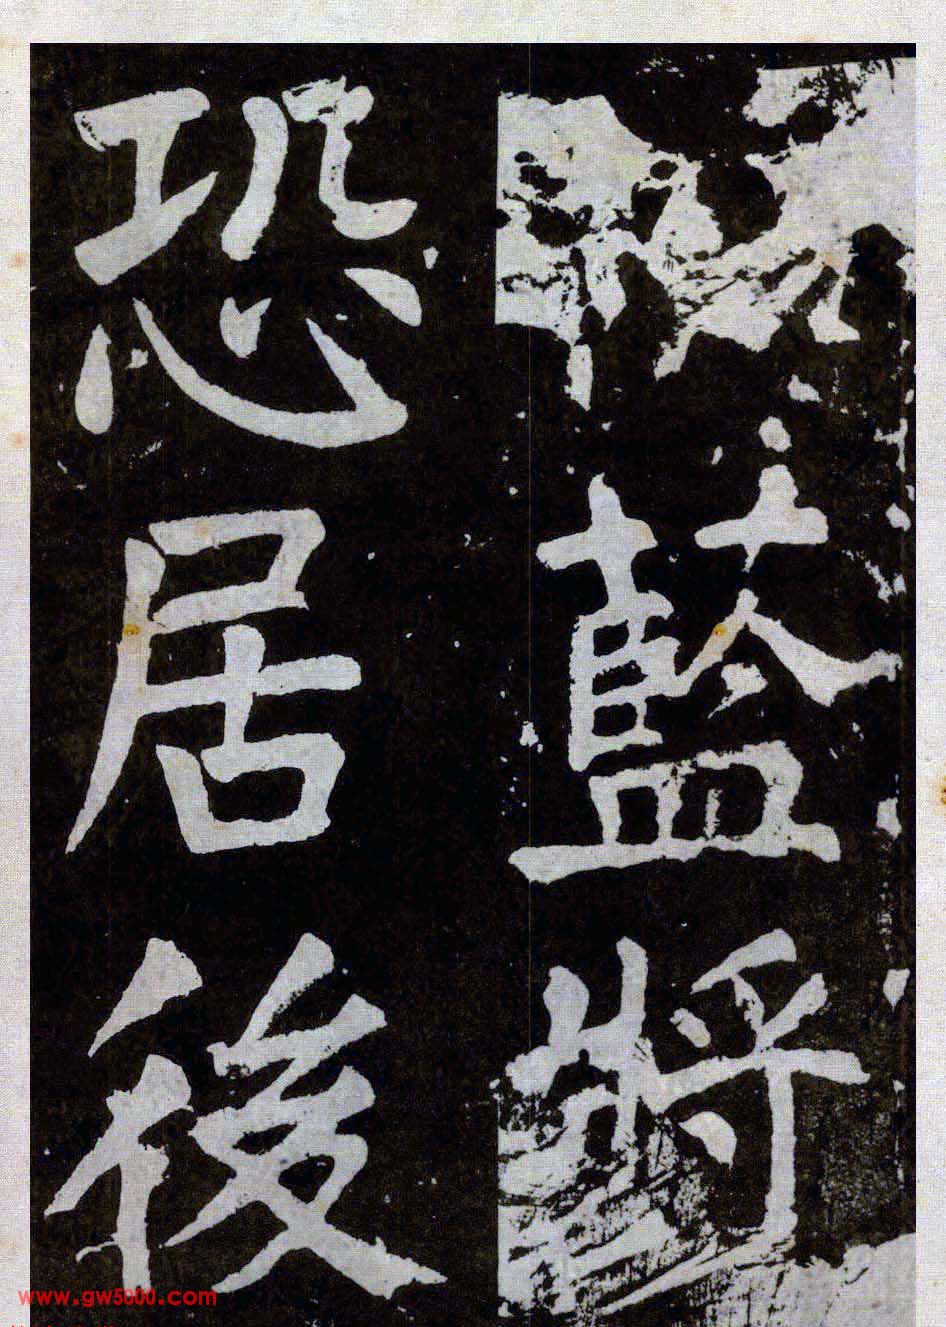 藍將
恐居後
www.gw5000.com